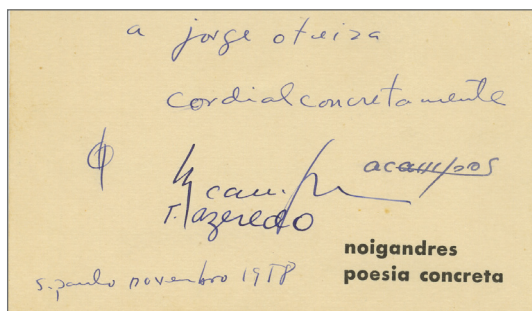 a jorge oteiza
cordialconcretamente
acampos
T. azeredo
noigandres
poesia concreta
s. paulo novembro 1958